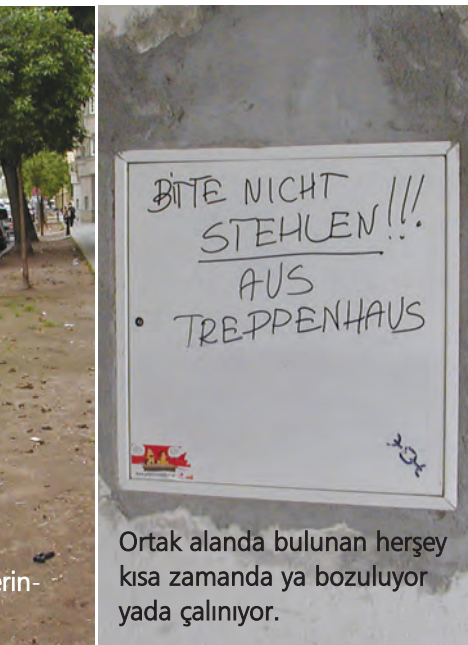 BITTE NICHT
STEHLEN!!!
AUS
TREPPENHAUS
erin-
Ortak alanda bulunan herşey
kısa zamanda ya bozuluyor
yada çalınıyor.